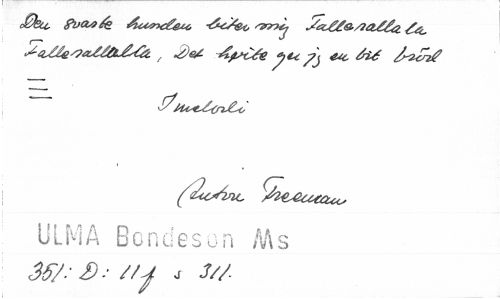 Den svarte hunden biter mig Fallerallala
Fallerallalla, Det hvite ger jg en bit bröd
I melodi
Anton Freeman
ULMA Bondeson Ms
351: D: 11 f s 311.